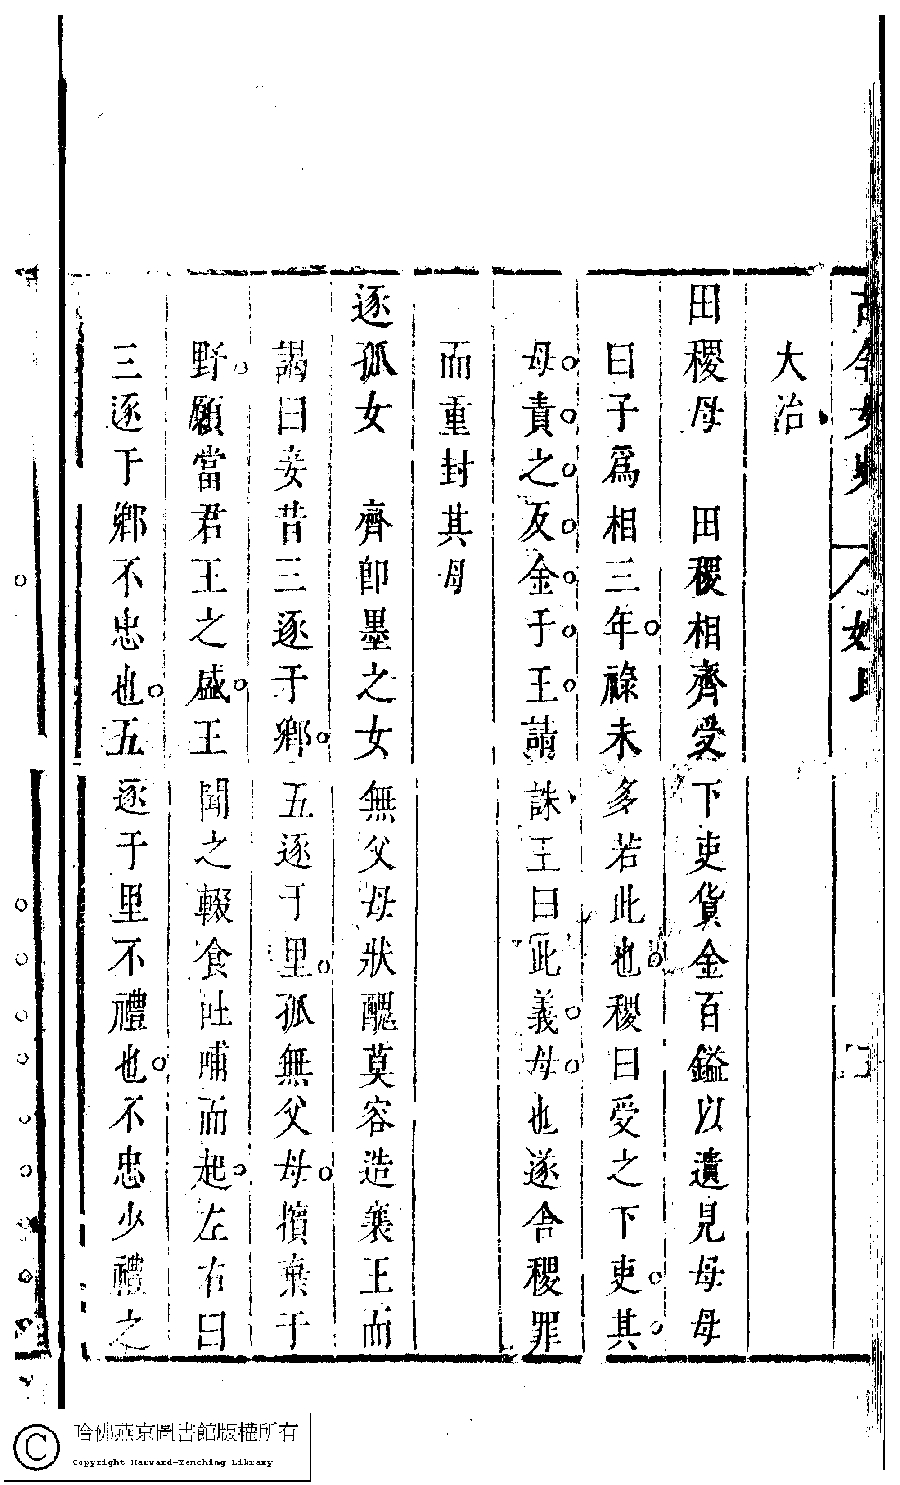 大治
田稷母　田稷相齊受下吏貨金百鎰以遺見母母
曰子爲相三年祿未多若此也稷曰受之下吏其
母責之反金于王請誅王曰此義母也遂舍稷罪
而重封其母
逐孤女　齊卽墨之女無父母狀醜莫容造襄王而
謁曰妾昔三逐于鄉五逐于里孤無父母擯棄于
野願當君王之盛王聞之輟食吐哺而起左右曰
三逐于鄉不忠也五逐于里不禮也不忠少禮之
哈佛燕京圖書館版權所有
Copyright Harvard-Yenching Library